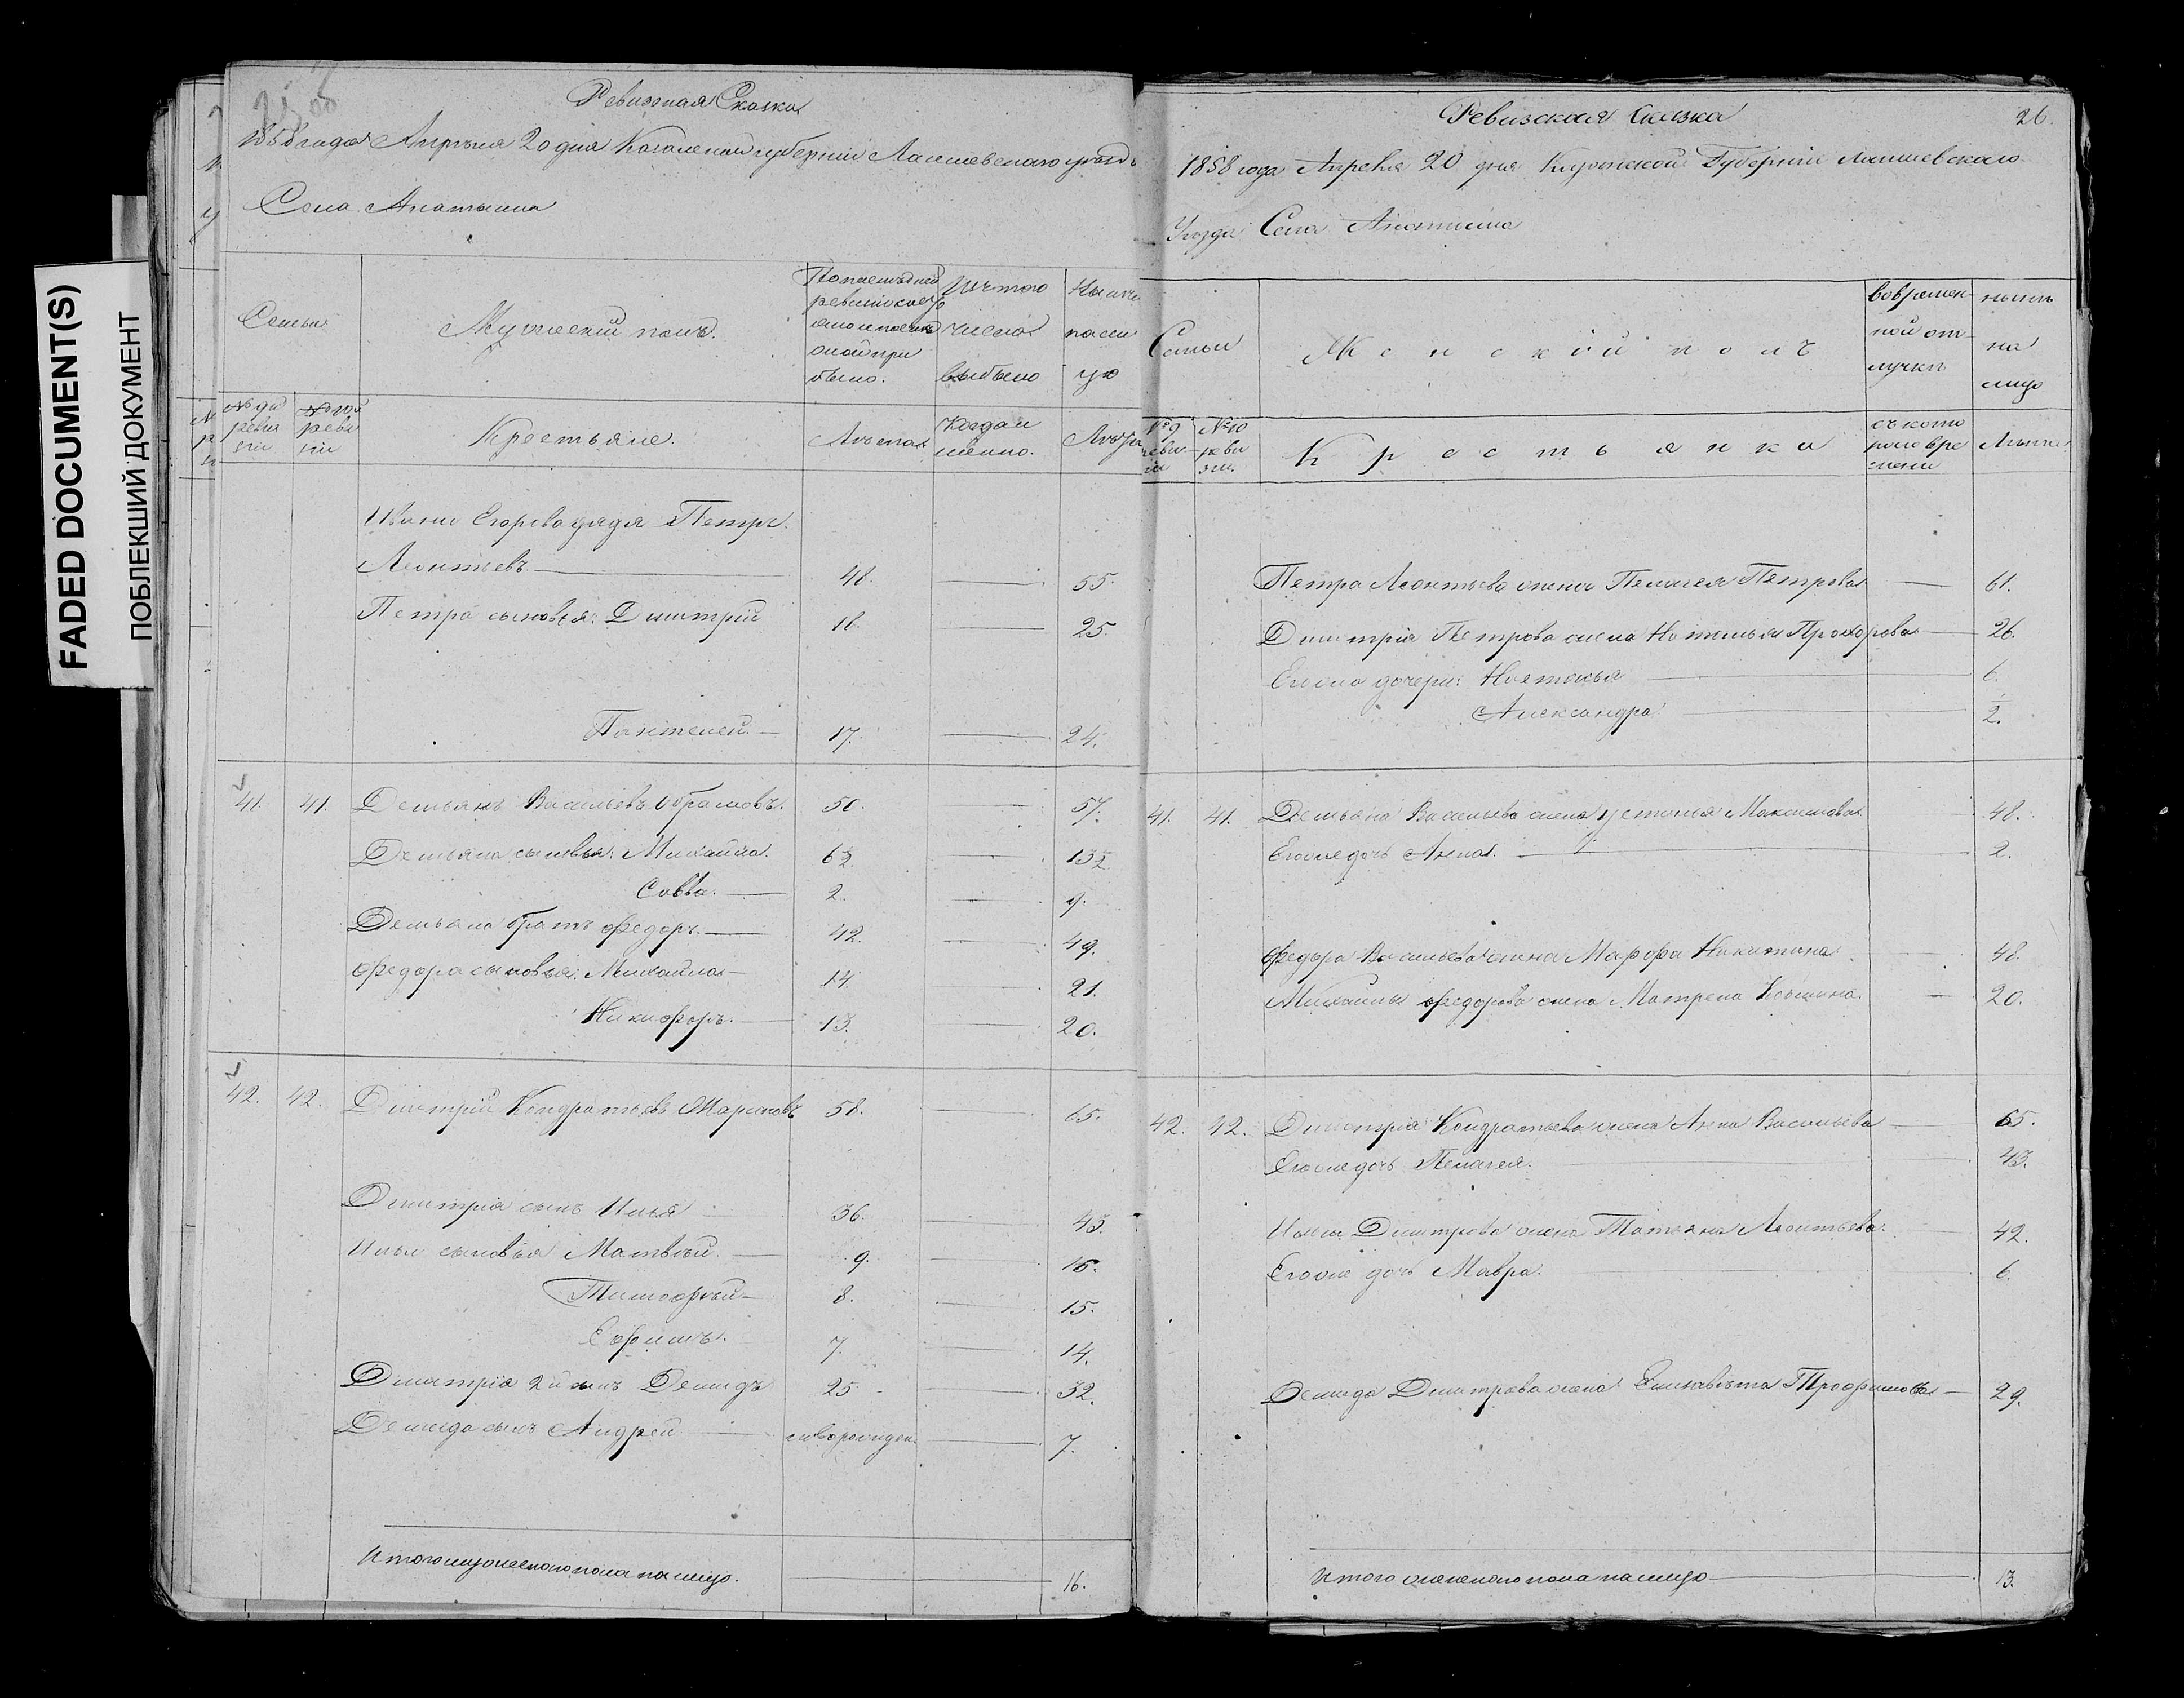 FADED DOCUMENT(S)
ПОБЛЕКШИЙ ДОКУМЕНТ
Ревизная Сказка
1858 года Апрѣля 20 дня Казанской губерніи Лаишевскаго уѣзда
Села Анатыша
Семьи
Мужескій полъ.
По последней ревизіи состояло и после оной прибыло.
Изъ того числа выбыло
Ныне на лицо
№ 9й ревизіи
№ 10й ревизіи
Крестьяне.
Лѣта
Когда именно.
Лѣта
Ивана Егорова дядя Петръ
Леонтьевъ 48. 55.
Петра сыновья: Дмитрій 18. 25.
Пантелей 17. 24.
41. 41. Демьянъ Васильевъ Абрамовъ. 50. 57.
Демьяна сыновья: Михайла. 6½ 13½
Савва. 2. 9.
Демьяна братъ Федоръ. 42. 49.
Федора сыновья: Михайла 14. 21.
Никифоръ. 13. 20.
42. 42. Дмитрій Кондратьевъ Марковъ 58. 65.
Дмитрія сынъ Илья 36. 43.
Ильи сыновья Матвѣй. 9. 16.
Тимофѣй 8. 15.
Ефимъ. 7. 14.
Дмитрія 2й сынъ Демидъ 25. 32.
Демида сынъ Андрей новорожден. 7.
Итого мужескаго пола на лицо. 16.
Ревизская Сказка 26.
1858 года Апреля 20 дня Казанской Губерніи Лаишевскаго
Уѣзда Села Анатыша
Семьи
Женской полъ
во временной отлучке
ныне на лицо
№ 9 ревизіи
№ 10 ревизіи.
Крестьянки
съ котораго времени
Лѣта
Петра Леонтьева жена Пелагея Петрова 61.
Дмитрія Петрова жена Наталья Прохорова 26.
Егоже дочери: Настасья 6.
Александра 2.
41. 41. Демьяна Васильева жена Устинья Максимова 48.
Егоже дочь Анна. 2.
Федора Васильева жена Марфа Никитина 48.
Михайлы Федорова жена Матрена 20.
42. 42. Дмитрія Кондратьева жена Анна Васильева 65.
Егоже дочь Пелагея. 43.
Ильи Дмитрова жена Татьяна Леонтьева 42.
Егоже дочь Мавра. 6.
Демида Дмитрова жена Елизавѣта Трофимова 29.
Итого женскаго пола на лицо 13.